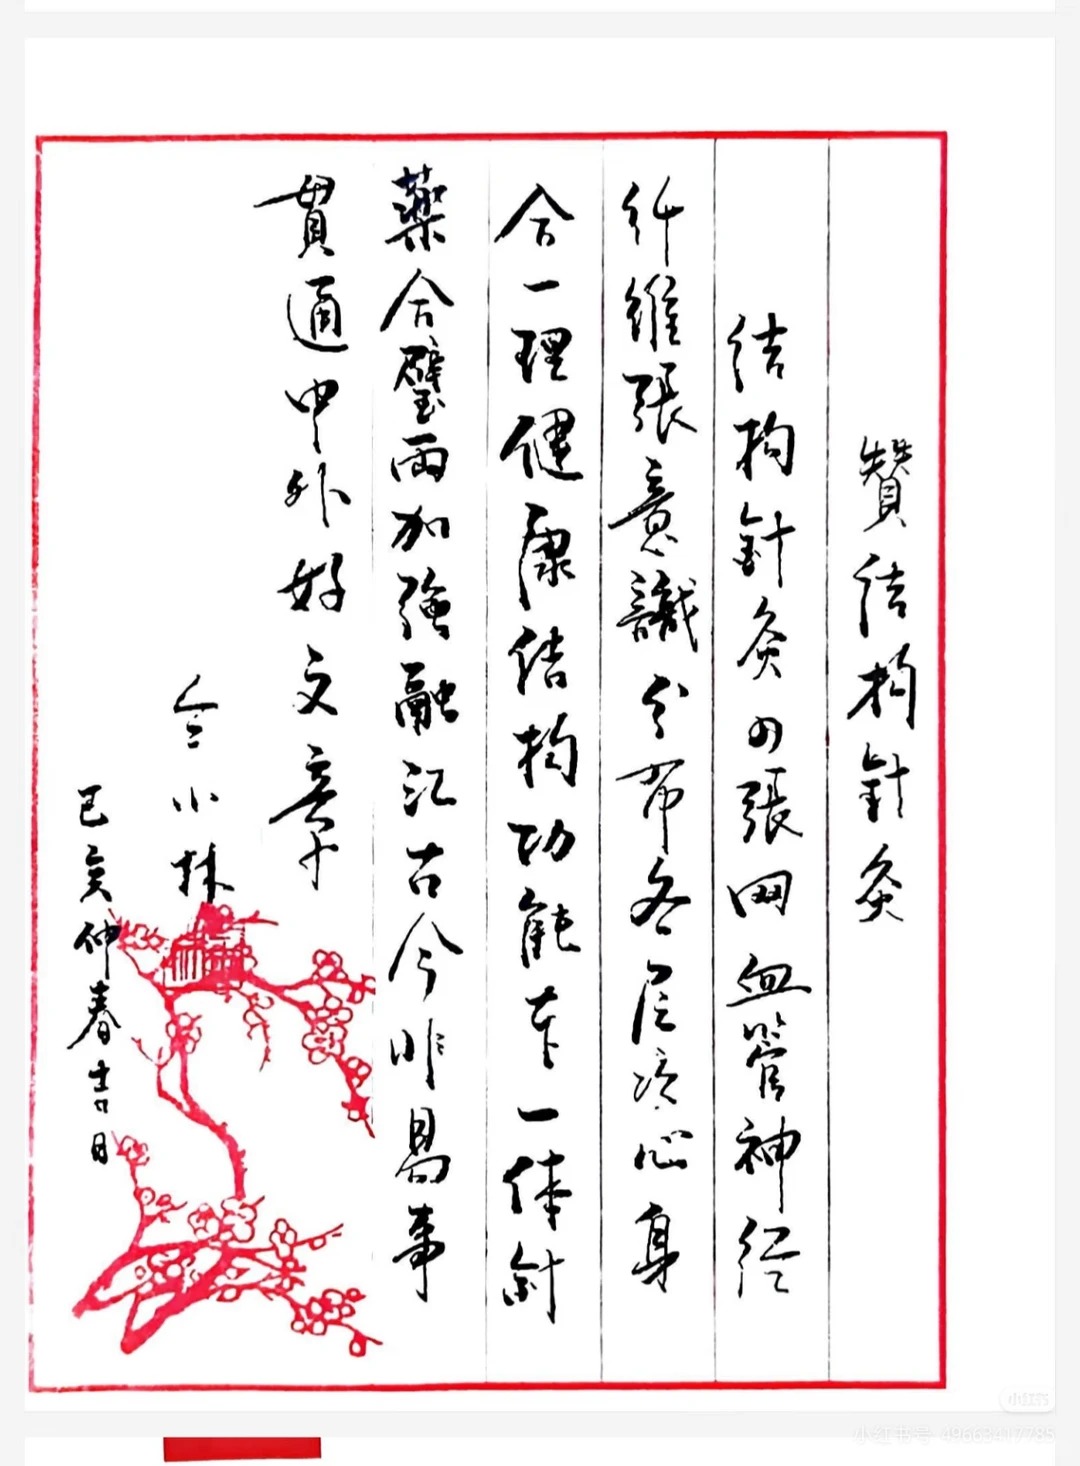 贊结构針灸
结构針灸四張网血管神经
纤維張意識分布各层次心身
合一理健康结构功能本一体針
藥合璧兩加強融汇古今非易事
貫通中外好文章
仝小林
己亥仲春吉日
小红书
小红书号 49663417785